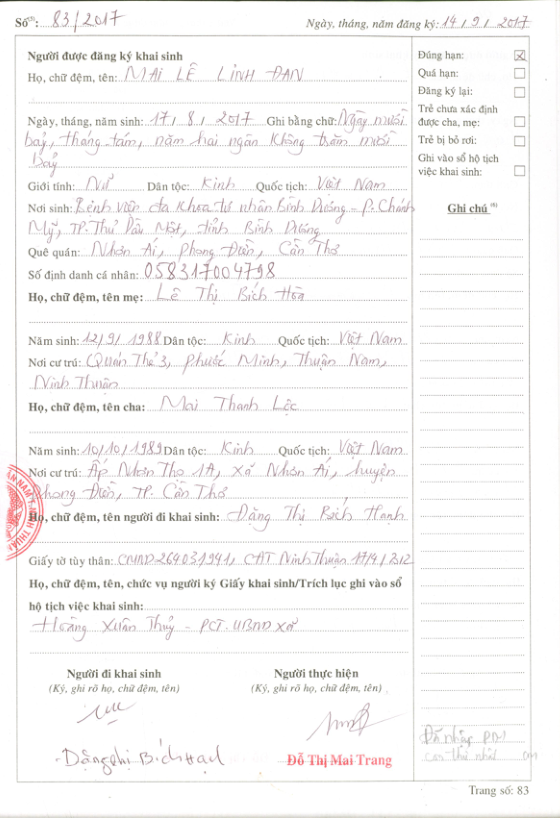 Số⁽⁵⁾: 83/2017
Ngày, tháng, năm đăng ký: 14/9/2017
Người được đăng ký khai sinh
Họ, chữ đệm, tên: MAI LÊ LINH ĐAN
Ngày, tháng, năm sinh: 17/8/2017 Ghi bằng chữ: Ngày mười
bảy, tháng tám, năm hai ngàn không trăm mười
bảy
Giới tính: Nữ Dân tộc: Kinh Quốc tịch: Việt Nam
Nơi sinh: Bệnh viện đa khoa tư nhân Bình Dương - P. Chánh
Mỹ, TP. Thủ Dầu Một, tỉnh Bình Dương
Quê quán: Nhơn Ái, Phong Điền, Cần Thơ
Số định danh cá nhân: 058317004798
Họ, chữ đệm, tên mẹ: Lê Thị Bích Hòa
Năm sinh: 12/9/1988 Dân tộc: Kinh Quốc tịch: Việt Nam
Nơi cư trú: Quán Thẻ 3, Phước Minh, Thuận Nam,
Ninh Thuận
Họ, chữ đệm, tên cha: Mai Thanh Lộc
Năm sinh: 10/10/1989 Dân tộc: Kinh Quốc tịch: Việt Nam
Nơi cư trú: Ấp Nhơn Thọ 1A, xã Nhơn Ái, huyện
Phong Điền, TP. Cần Thơ
Họ, chữ đệm, tên người đi khai sinh: Đặng Thị Bích Hạnh
Giấy tờ tùy thân: CMND 264031941, CAT Ninh Thuận
Họ, chữ đệm, tên, chức vụ người ký Giấy khai sinh/Trích lục ghi vào sổ
hộ tịch việc khai sinh:
Hoàng Xuân Thủy - PCT. UBND xã
Người đi khai sinh
(Ký, ghi rõ họ, chữ đệm, tên)
Người thực hiện
(Ký, ghi rõ họ, chữ đệm, tên)
Đỗ Thị Mai Trang
Đúng hạn:
Quá hạn:
Đăng ký lại:
Trẻ chưa xác định
được cha, mẹ:
Trẻ bị bỏ rơi:
Ghi vào sổ hộ tịch
việc khai sinh:
Ghi chú ⁽⁶⁾
Đã nhập
con thứ nhất
Trang số: 83